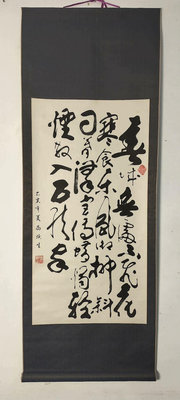 春城無處不飛花
寒食東風御柳斜
日暮漢宮傳蠟燭輕
煙散入五侯家